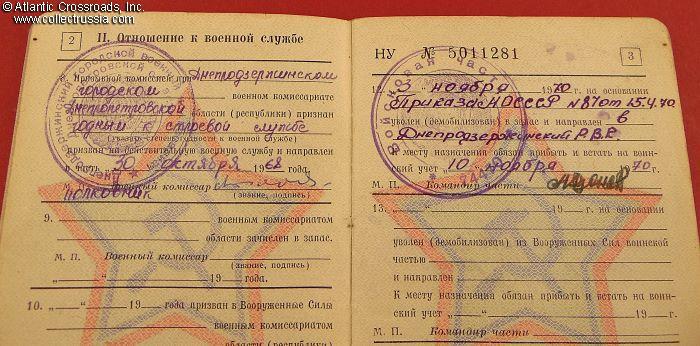 © Atlantic Crossroads, Inc.
www.collectrussia.com
2
II. Отношение к военной службе
Призывной комиссией при Днепродзержинском
городском военном комиссариате
Днепропетровской области (республики) признан
годным к строевой службе
(указать степень годности к военной службе)
призван на действительную военную службу и направлен
в часть „30“ октября 1968 года.
М. П. Военный комиссар
полковник (звание, подпись)
9. военным комиссариатом
области зачислен в запас.
М. П. Военный комиссар
(звание, подпись)
„ “ 19 года.
10. „ “ 19 года призван в Вооруженные Силы
военным комиссариатом
области (республики)
НУ № 5011281
3
12. 3 ноября 1970 г. на основании
Приказа МО СССР N 87 от 15.4.70
уволен (демобилизован) в запас и направлен в
Днепродзержинский Р.В.К
К месту назначения обязан прибыть и встать на воин-
ский учет „10“ ноября 1970 г.
М. П. Командир части
13. „ “ 19 г. на основании
уволен (демобилизован) из Вооруженных Сил воинской
частью
и направлен
К месту назначения обязан прибыть и встать на воин-
ский учет „ “ 19 г.
М. П. Командир части